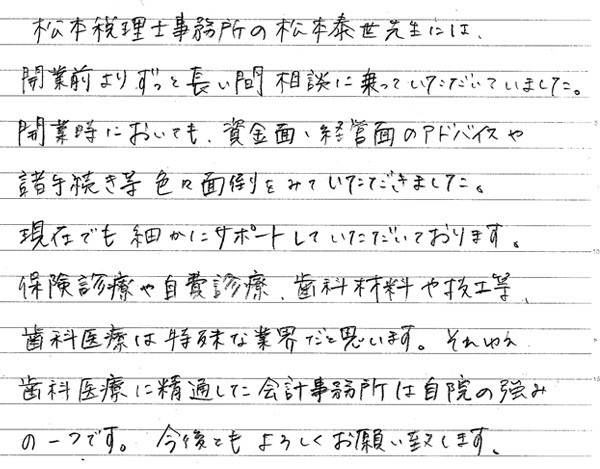 松本税理士事務所の松本泰世先生には、
開業前よりずっと長い間相談に乗っていただいていました。
開業時においても、資金面・経営面のアドバイスや
諸手続き等色々面倒をみていただきました。
現在でも細かにサポートしていただいております。
保険診療や自費診療、歯科材料や技工等、
歯科医療は特殊な業界だと思います。それゆえ
歯科医療に精通した会計事務所は自院の強み
の一つです。今後ともよろしくお願い致します。